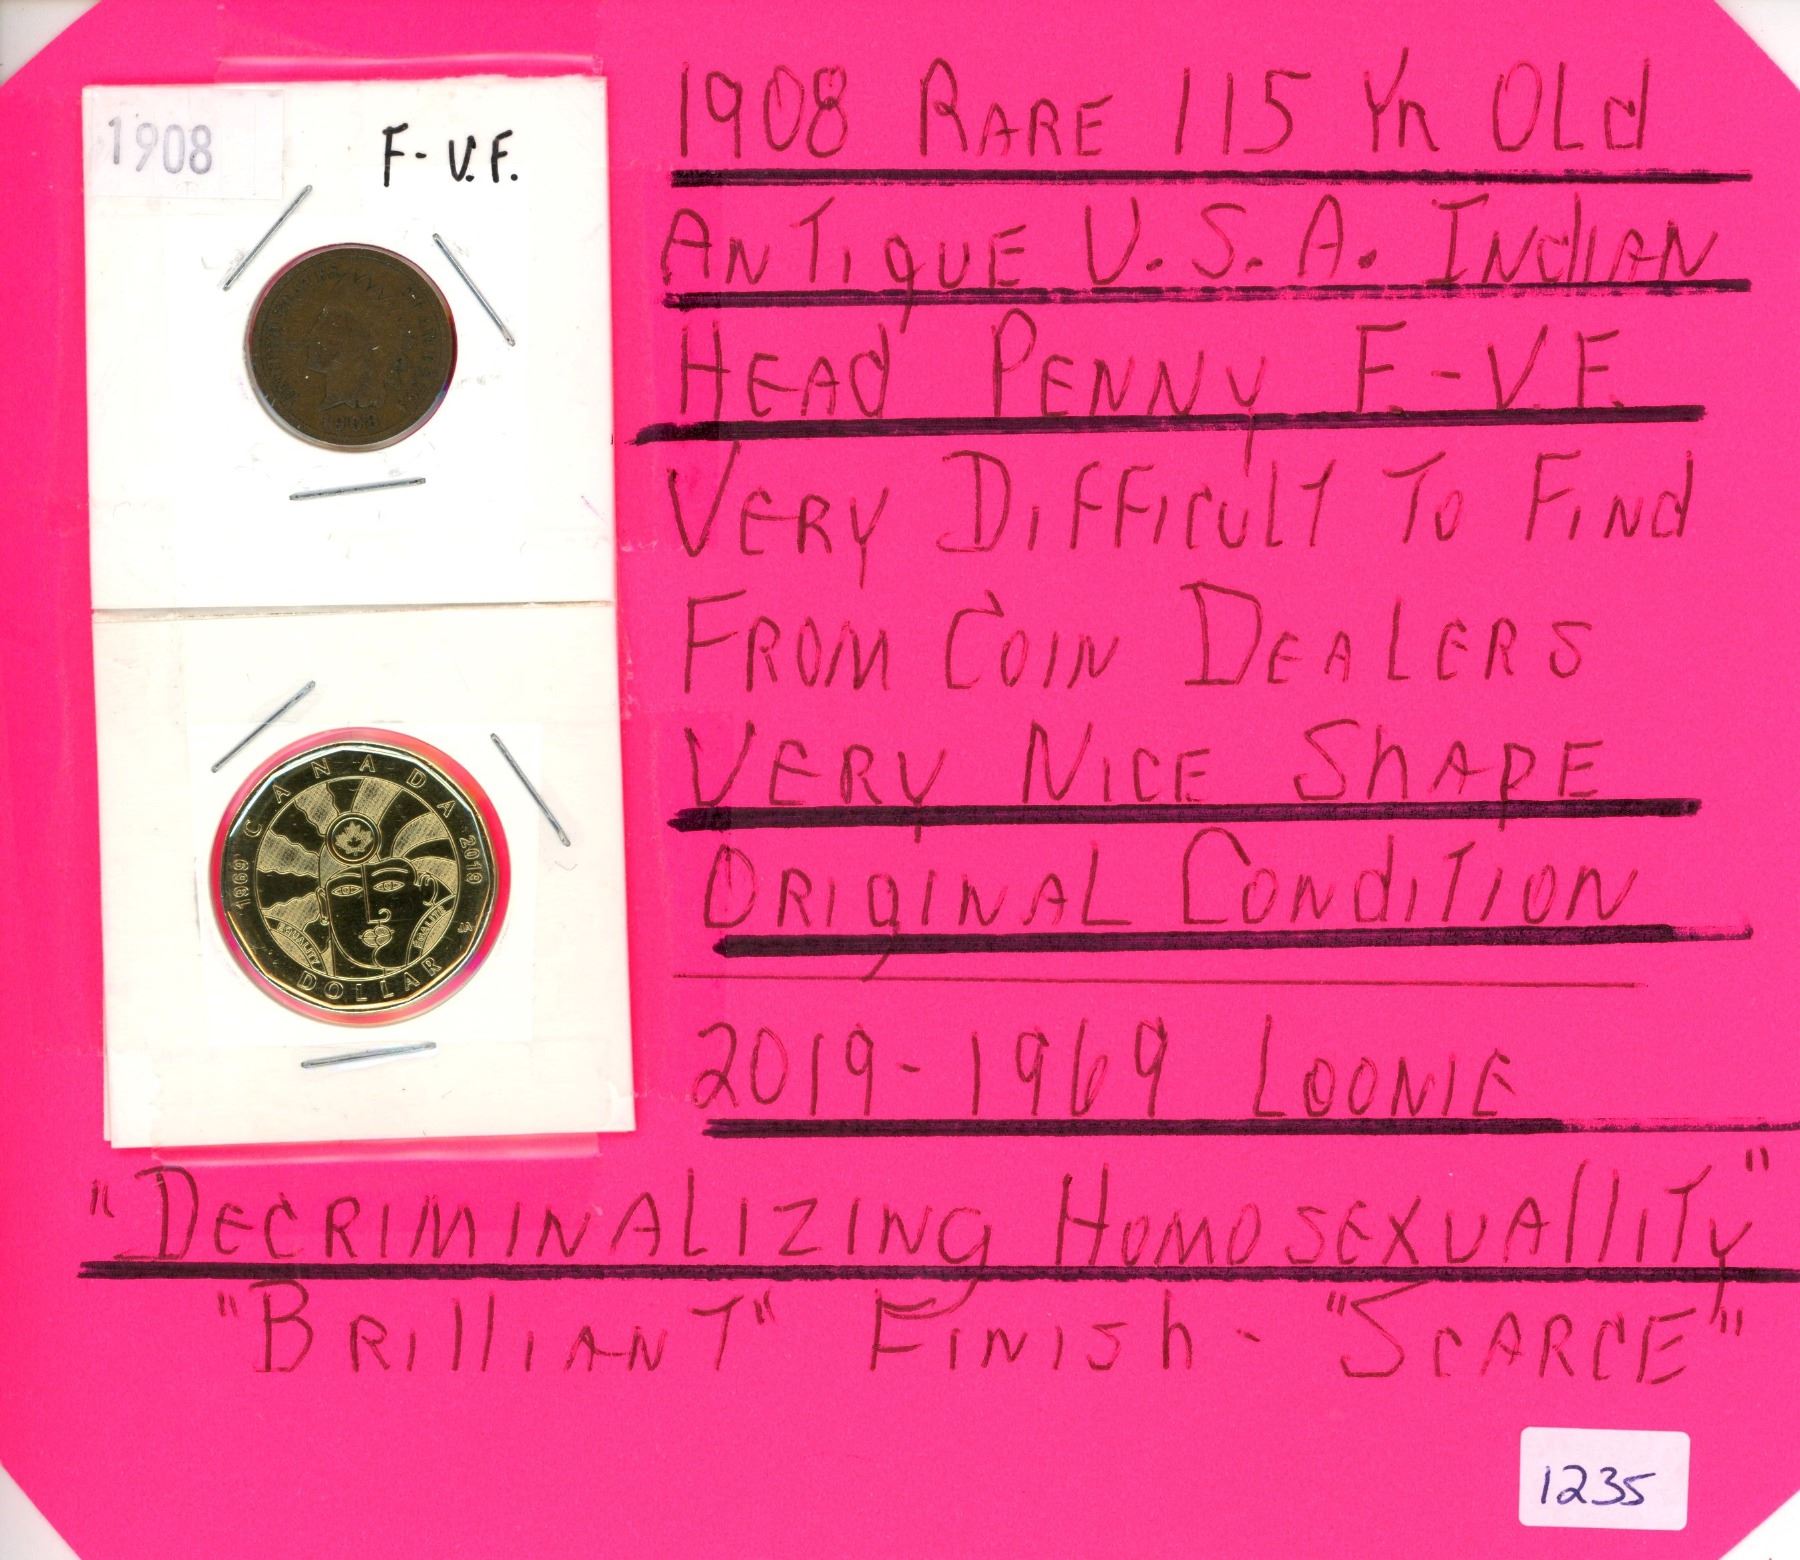 1908
F-V.F.
UNITED STATES OF AMERICA
1908
CANADA
1969 2019
EQUALITY EGALITÉ
JA
DOLLAR
1908 RARE 115 YR OLD
ANTIQUE U.S.A. INDIAN
HEAD PENNY F.-V.F.
VERY DIFFICULT TO FIND
FROM COIN DEALERS
VERY NICE SHAPE
ORIGINAL CONDITION
2019-1969 LOONIE
"DECRIMINALIZING HOMOSEXUALLITY"
"BRILLIANT" FINISH - "SCARCE"
1235